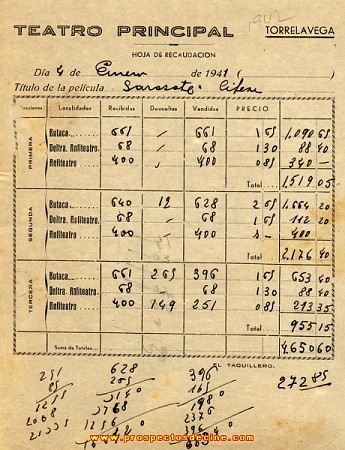 1942
TEATRO PRINCIPAL TORRELAVEGA
HOJA DE RECAUDACION
Día 4 de Enero de 1941 ( )
Título de la película Sarasate. Cifesa
Secciones Localidades Recibidas Devueltas Vendidas PRECIO
PRIMERA
Butaca 661 - 661 1 65 1.090 65
Deltra. Anfiteatro 68 , 68 1 30 88 40
Anfiteatro 400 , 400 0 85 340 —
Total 1519 05
SEGUNDA
Butaca 640 12 628 2 65 1.664 20
Deltra. Anfiteatro 68 , 68 1 65 112 20
Anfiteatro 400 , 400 1 - 400
Total 2,176 40
TERCERA
Butaca 661 265 396 1 65 653 40
Deltra. Anfiteatro 68 , 68 1 30 88 40
Anfiteatro 400 149 251 0 85 213 35
Total 955 15
Suma de Totales 4.650 60
EL TAQUILLERO,
251 628 396 272 85
85 265 165
1255 3140 1980
2008 3768 2376
21335 396
www.prospectosdecine.com